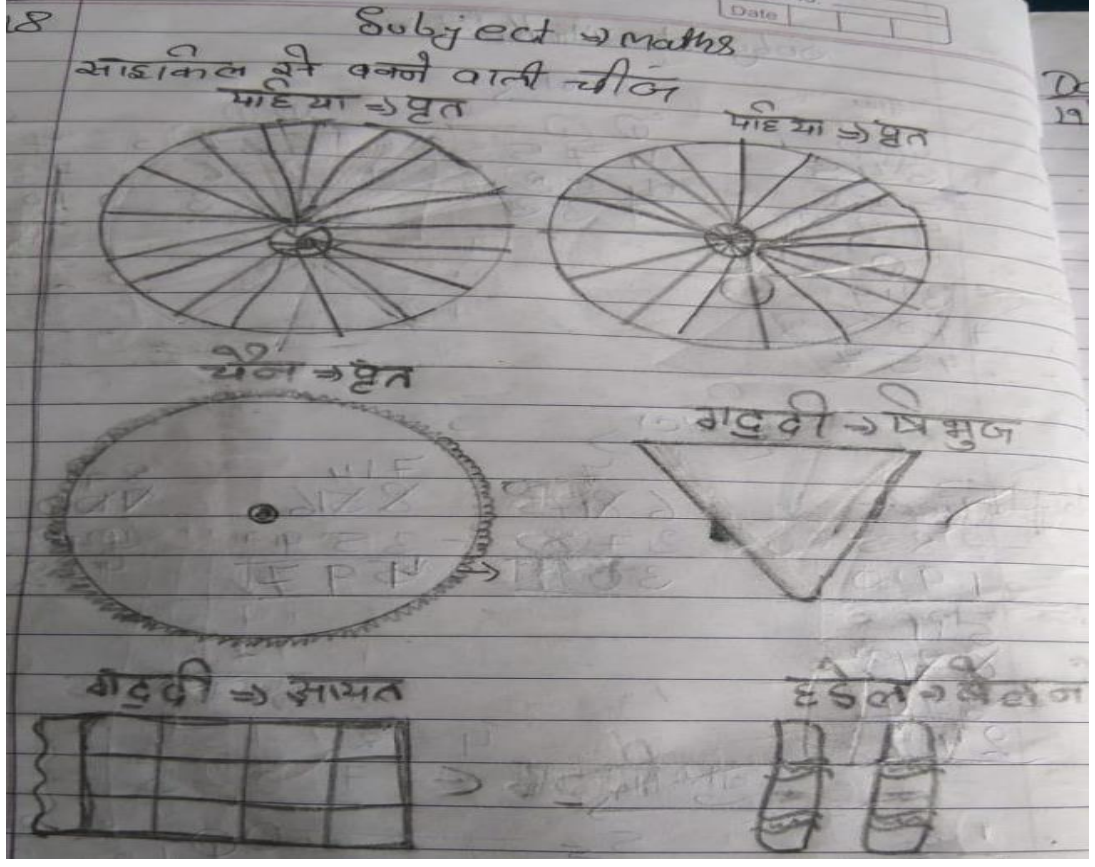 18
Date
Subject → maths
साईकिल से बनने वाली चीज
पहिया → वृत
पहिया → वृत
चैन → वृत
गद्दी → त्रिभुज
गद्दी → आयत
हैडल → बेलन